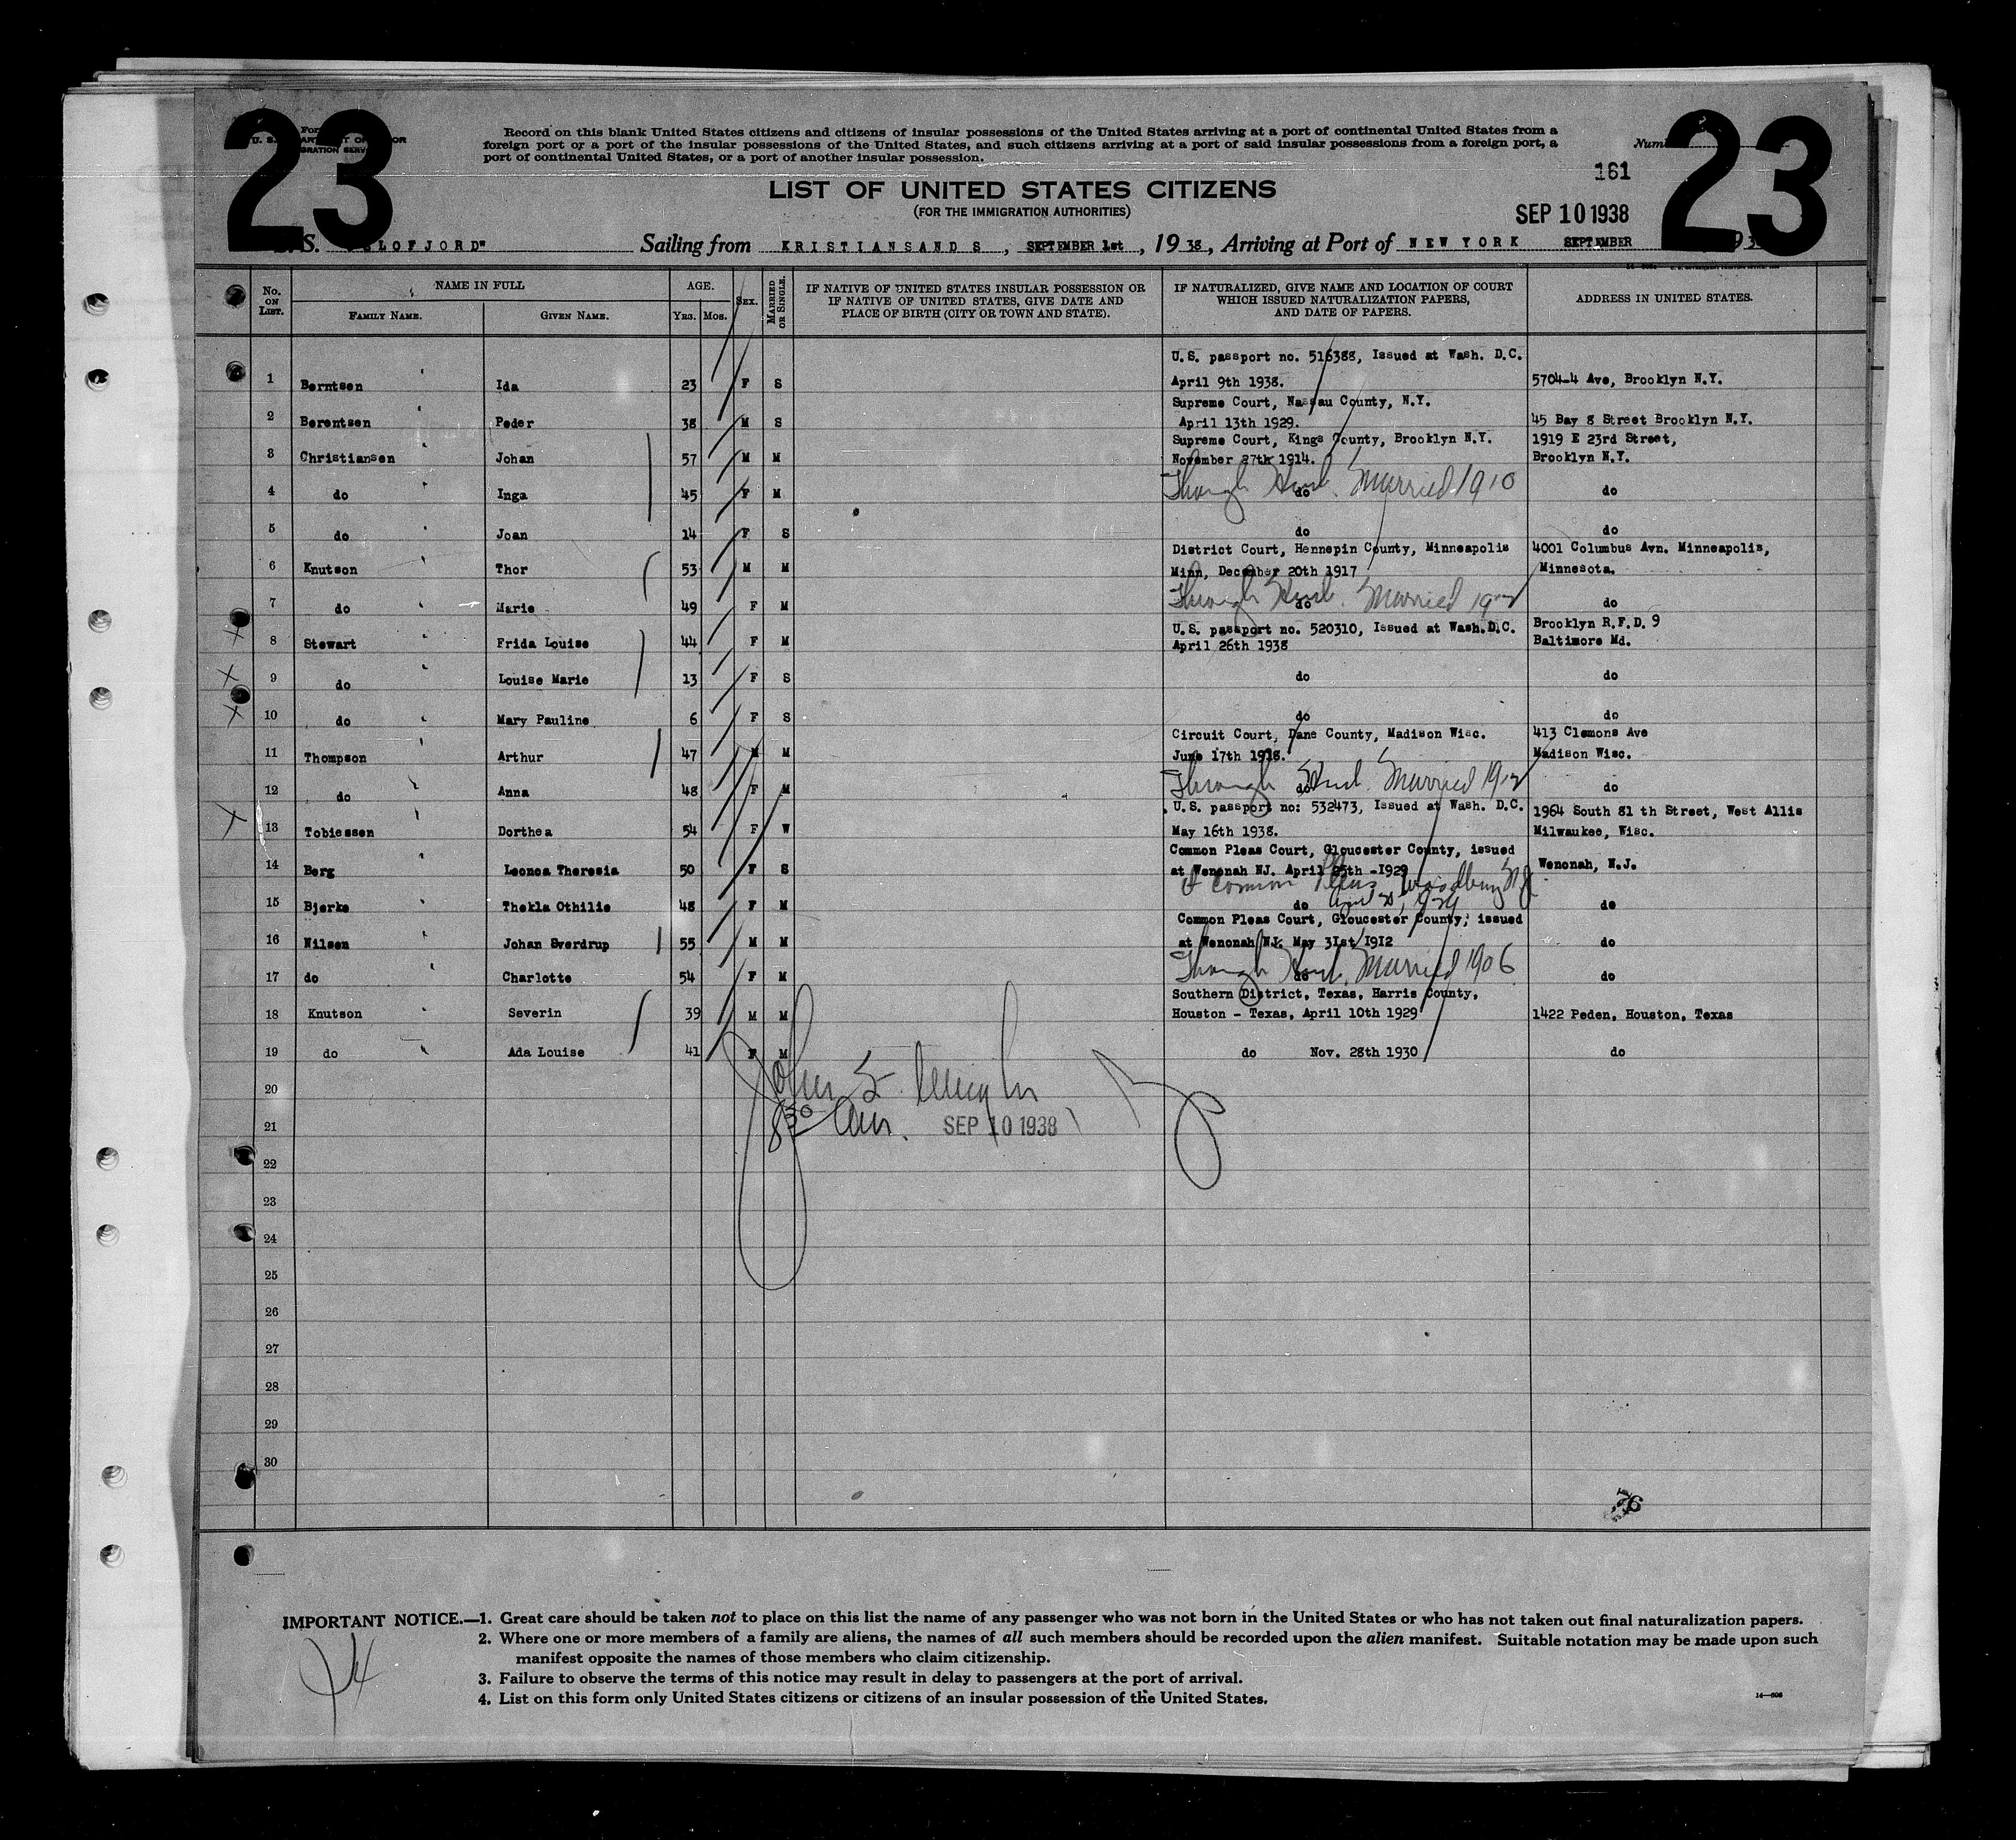 23
23
Record on this blank United States citizens and citizens of insular possessions of the United States arriving at a port of continental United States from a
foreign port or a port of the insular possessions of the United States, and such citizens arriving at a port of said insular possessions from a foreign port, a
port of continental United States, or a port of another insular possession.
161
LIST OF UNITED STATES CITIZENS
(FOR THE IMMIGRATION AUTHORITIES)
SEP 10 1938
S. LOFJORD" Sailing from KRISTIANSAND S, SEPTEMBER 1st, 1938, Arriving at Port of NEW YORK SEPTEMBER
No. ON LIST. NAME IN FULL AGE. SEX. MARRIED OR SINGLE. IF NATIVE OF UNITED STATES INSULAR POSSESSION OR IF NATIVE OF UNITED STATES, GIVE DATE AND PLACE OF BIRTH (CITY OR TOWN AND STATE). IF NATURALIZED, GIVE NAME AND LOCATION OF COURT WHICH ISSUED NATURALIZATION PAPERS, AND DATE OF PAPERS. ADDRESS IN UNITED STATES.
FAMILY NAME. GIVEN NAME. YRS. MOS.
U.S. passport no. 516388, Issued at Wash. D.C.
1 Berntsen Ida 23 F S April 9th 1938. 5704-4 Ave, Brooklyn N.Y.
Supreme Court, Nassau County, N.Y.
2 Berentsen Peder 38 M S April 13th 1929. 45 Bay 8 Street Brooklyn N.Y.
Supreme Court, Kings County, Brooklyn N.Y. 1919 E 23rd Street,
3 Christiansen Johan 57 M M November 27th 1914. Brooklyn N.Y.
4 do Inga 45 F M do Through Husb. Married 1910 do
5 do Joan 14 F S do do
District Court, Hennepin County, Minneapolis 4001 Columbus Avn. Minneapolis,
6 Knutson Thor 53 M M Minn, December 20th 1917 Minnesota.
7 do Marie 49 F M do Through Husb. Married do
U.S. passport no. 520310, Issued at Wash.D.C. Brooklyn R.F.D. 9
8 Stewart Frida Louise 44 F M April 26th 1938 Baltimore Md.
9 do Louise Marie 13 F S do do
10 do Mary Pauline 6 F S do do
Circuit Court, Dane County, Madison Wisc. 413 Clemons Ave
11 Thompson Arthur 47 M M June 17th 1918. Madison Wisc.
12 do Anna 48 F M do Through Husb. Married do
U.S. passport no: 532473, Issued at Wash. D.C. 1964 South 81 th Street, West Allis
13 Tobiessen Dorthea 54 F W May 16th 1938. Milwaukee, Wisc.
Common Pleas Court, Gloucester County, issued
14 Berg Leonoa Theresia 50 F S at Wenonah NJ. April -1929 Wenonah, N.J.
Common Pleas Woodbury NJ
15 Bjerke Thekla Othilie 48 F M do do
Common Pleas Court, Gloucester County, issued
16 Nilsen Johan Sverdrup 55 M M at Wenonah NJ. May 31st 1912 do
17 do Charlotte 54 F M do Through Husb. Married 1906 do
Southern District, Texas, Harris County,
18 Knutson Severin 39 M M Houston - Texas, April 10th 1929 1422 Peden, Houston, Texas
19 do Ada Louise 41 F M do Nov. 28th 1930 do
20
21 SEP 10 1938
22
23
24
25
26
27
28
29
30
IMPORTANT NOTICE.—1. Great care should be taken not to place on this list the name of any passenger who was not born in the United States or who has not taken out final naturalization papers.
2. Where one or more members of a family are aliens, the names of all such members should be recorded upon the alien manifest. Suitable notation may be made upon such
manifest opposite the names of those members who claim citizenship.
3. Failure to observe the terms of this notice may result in delay to passengers at the port of arrival.
4. List on this form only United States citizens or citizens of an insular possession of the United States.